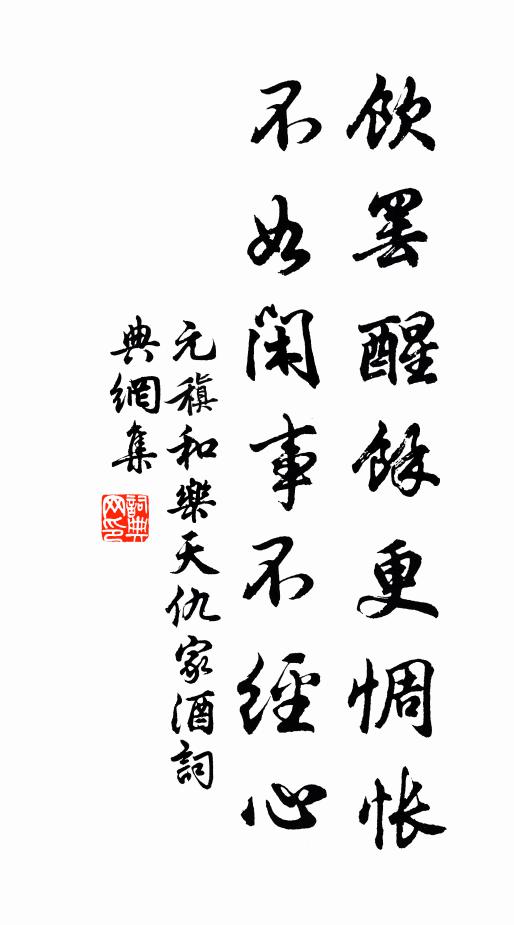 飲罷醒餘更惆悵
不如閑事不經心
元稹和樂天仇家酒詞
典網集
詞典网印